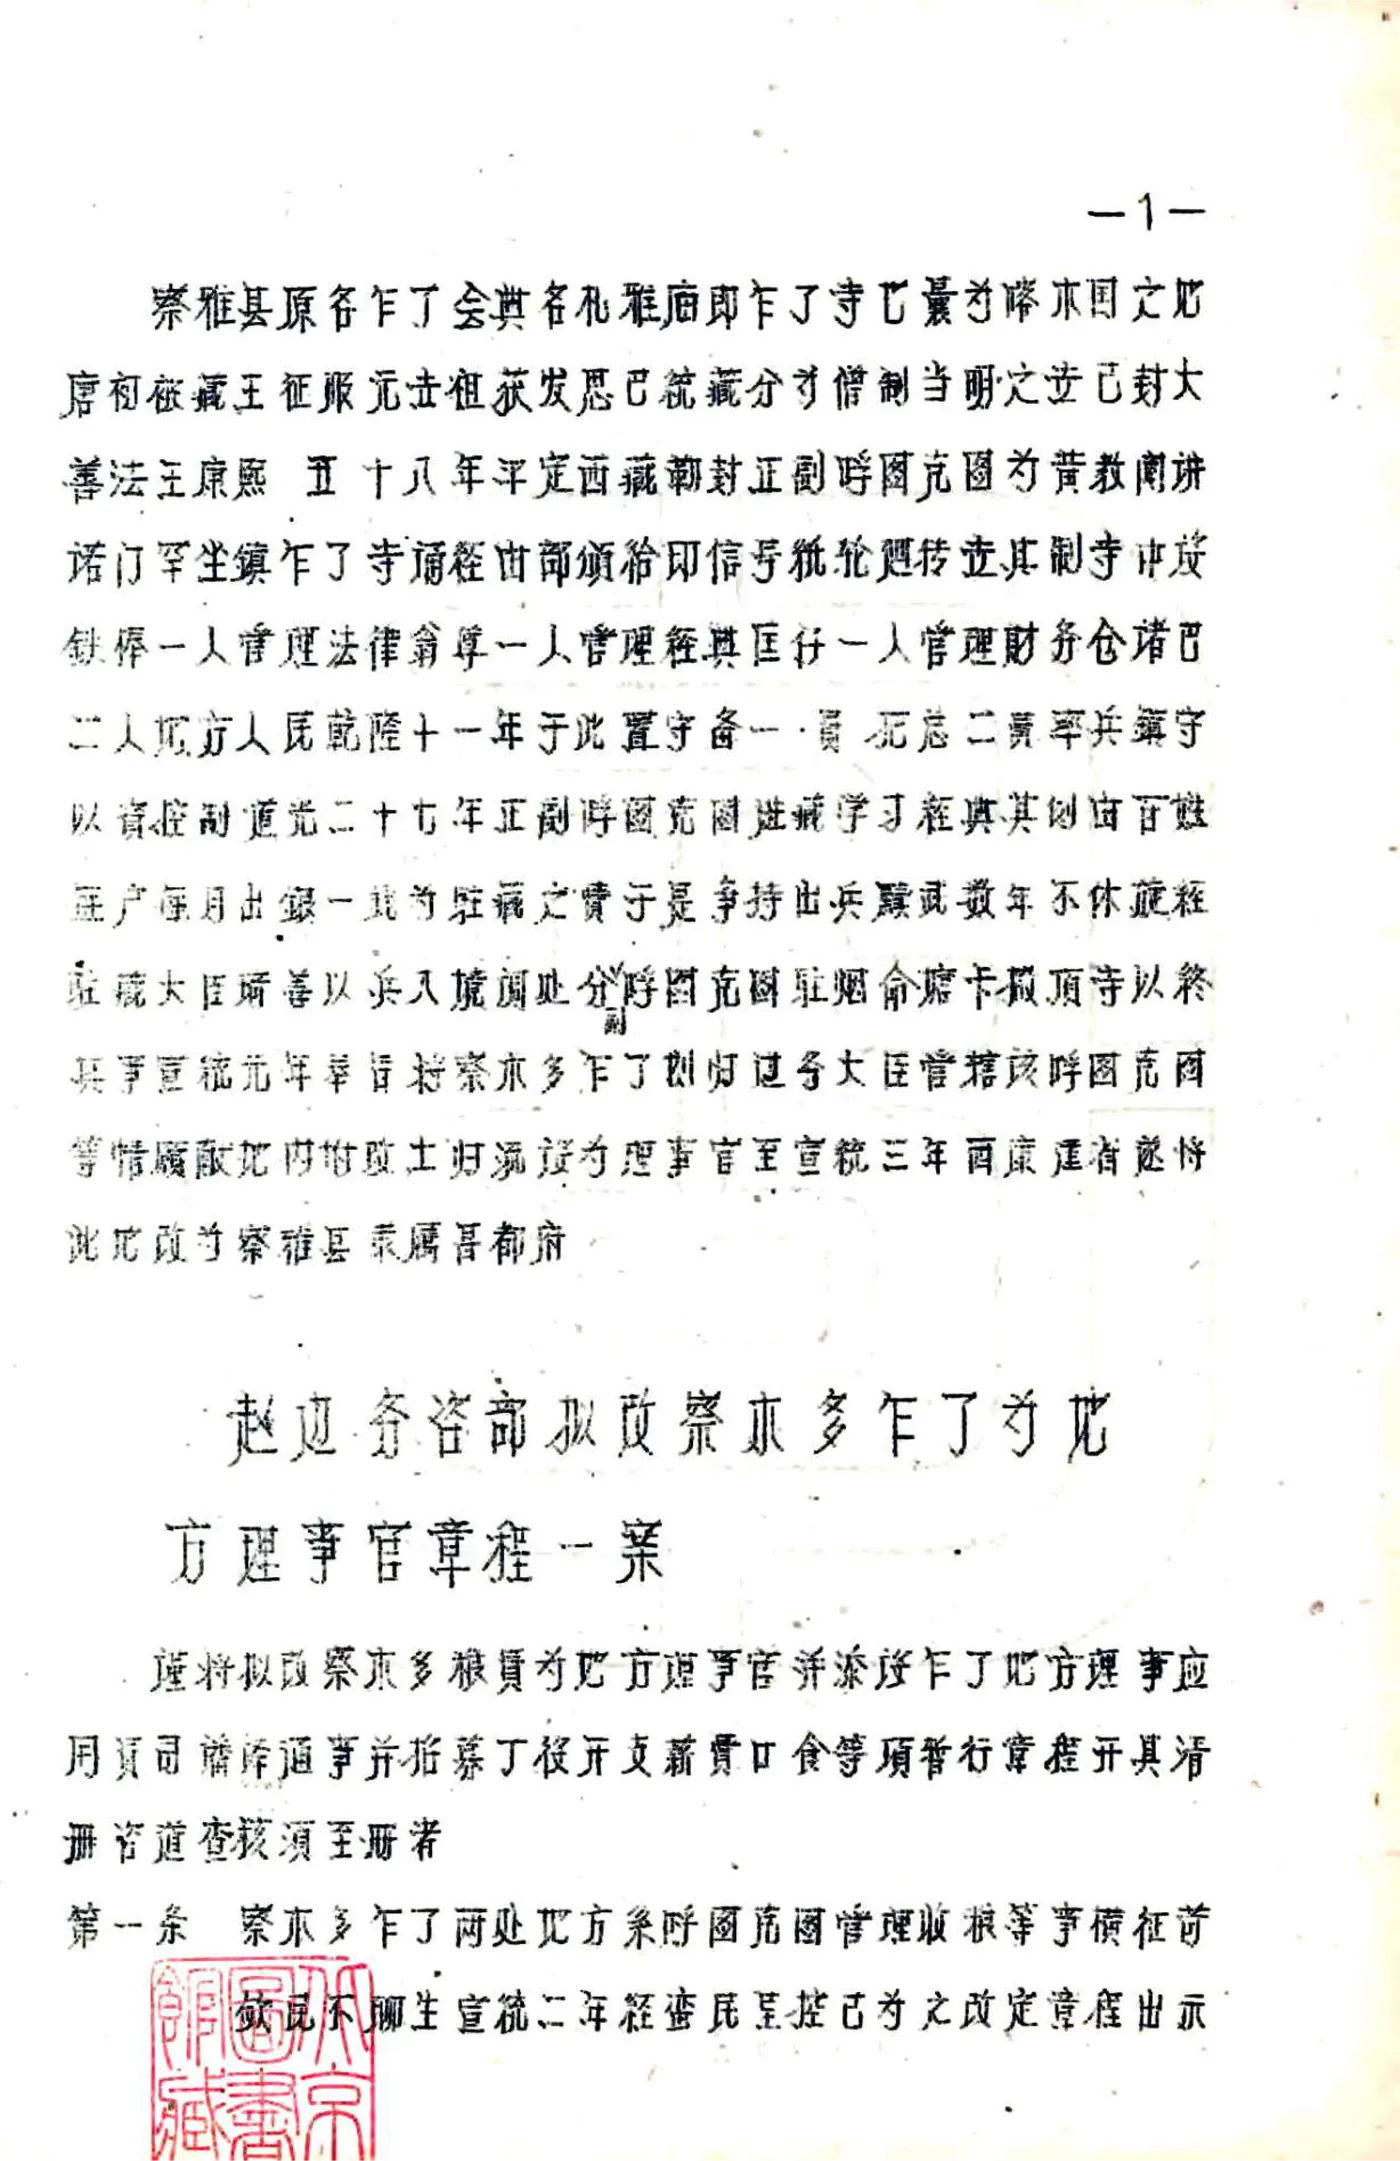 —1—
察雅县原名乍了会典名札雅庙即乍了寺也曩为喀木国之地
唐初被藏王征服元世祖获发思巴统藏分为僧制当明之世已封大
善法王康熙 五十八年平定西藏勅封正副呼图克图为黄教阐讲
诺门罕坐鎮乍了寺诵经由部颁给印信号纸轮廻转世其制寺中放
鉄棒一人管理法律翁尊一人管理经典匡仔一人管理財务仓诸巴
二人 方人民乾隆十一年于此置守备一员 总二員率兵鎮守
以資控制道光二十七年正副呼图克图进藏学习经典其 由百姓
每户每月出銀一 为駐藏之費于是争持出兵黩武数年不休旋经
駐藏大臣琦善以兵入境 处分副呼图克图駐烟俞 卡撒頂寺以终
其事宣统元年奉旨将察木多乍了划归边务大臣管辖该呼图克图
等情願献地内附改土归流设为理事官至宣统三年西康建省遂将
此地改为察雅县隶属昌都府
赵边务咨部拟改察木多乍了为地
方理事官章程一案
谨将拟改察木多粮員为地方理事官并添设乍了地方理事应
用員司 通事并招募丁役开支薪費口食等項暂行章程开具清
册咨道查核須至册者
第一条 察木多乍了两处地方系呼图克图管理收粮等事横征苛
歛民不聊生宣统二年经蛮民呈控已为之改定章程出示
北京圖書館藏